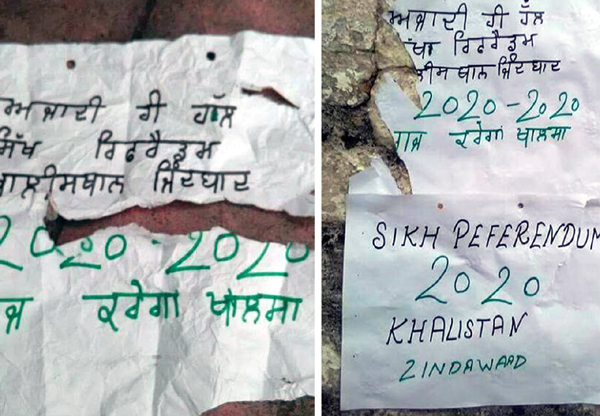 ਅਜਾਦੀ ਹੀ ਹੱਲ
ਸਿੱਖ ਰਿਫਰੈਡਮ
ਖਾਲੀਸਥਾਲ ਜਿੰਦਬਾਦ
2020-2020
ਜ ਕਰੇਗਾ ਖਾਲਸਾ
ਅਜਾਦੀ ਹੀ ਹੱਲ
ਸਿੱਖ ਰਿਫਰੈਡਮ
ਲੀਸਥਾਲ ਜਿੰਦਬਾਦ
2020-2020
ਰਾਜ ਕਰੇਗਾ ਖਾਲਸਾ
SIKH PEFERENDUM
2020
KHALISTAN
ZINDAWAAD